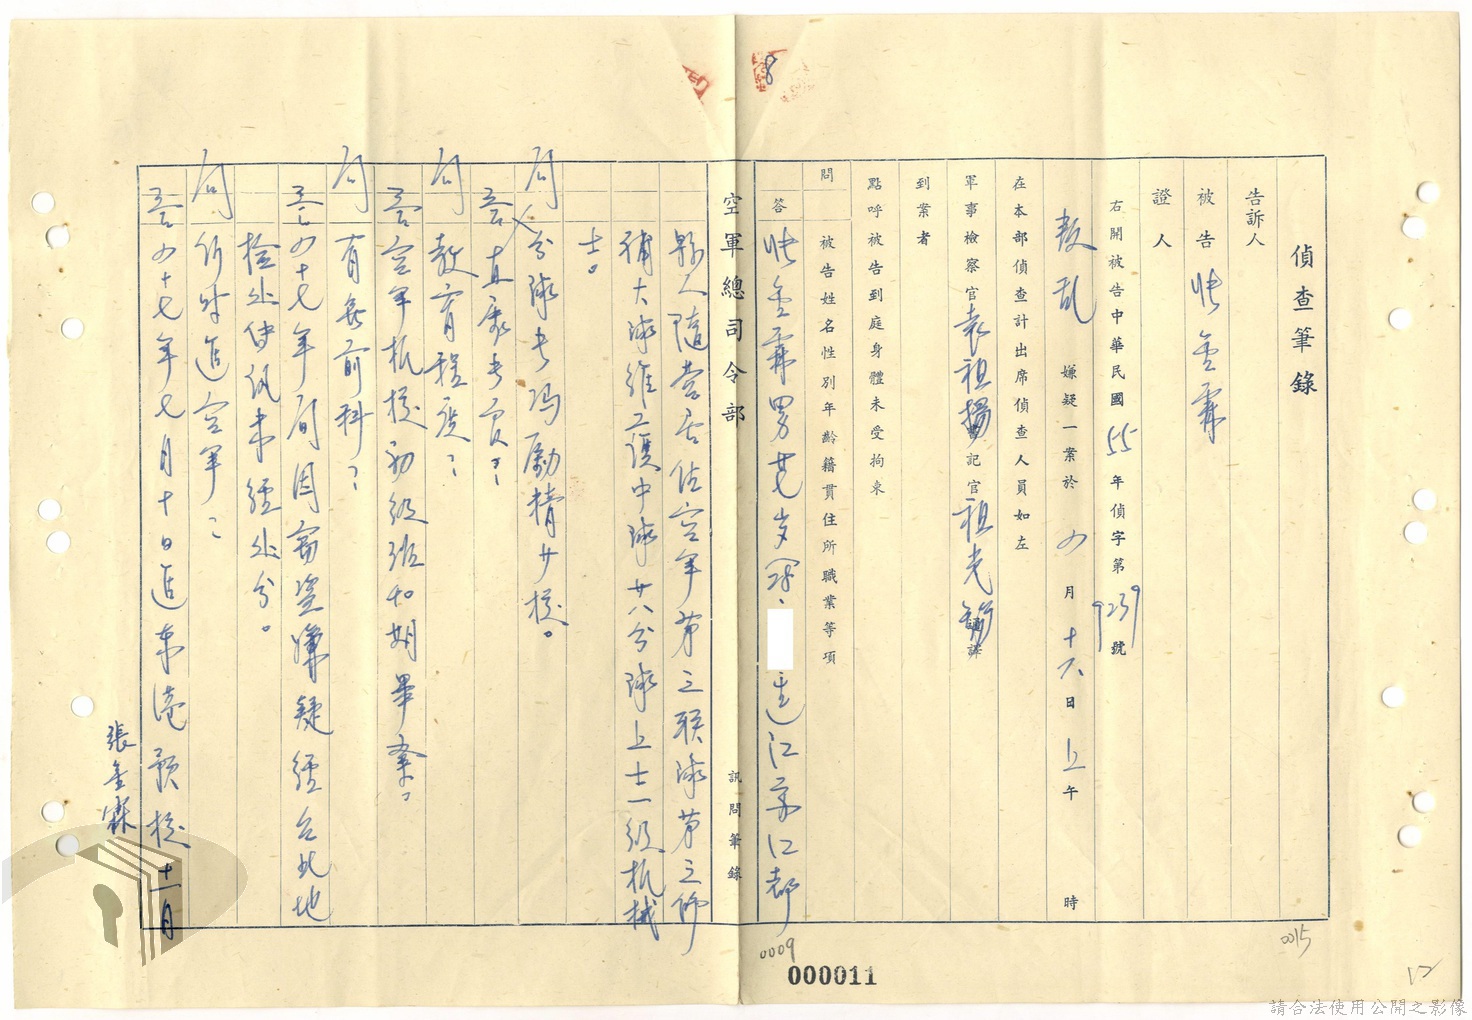 偵查筆錄
告訴人
被告 張金霖
證人
右開被告中華民國55年偵字第9239號
叛乱 嫌疑一案於 四月十六日上午 時
在本部偵查計出席偵查人員如左
軍事檢察官 袁祖揚 書記官 祖光 通譯
到案者
點呼被告到庭身體未受拘束
問 被告姓名性別年齡籍貫住所職業等項
答 張金霖男 岁 江苏江都
空軍總司令部 訊問筆錄
縣人隨营居住空军第三联隊第三修
補大隊維護中隊廿八分隊上士一級机械
士。
问 分隊長 勵精少校。
答 直屬長官?
问 教育程度?
答 空军机校初級班 期畢業。
问 有無前科?
答 四十七年 间因竊盜嫌疑經台北地
檢處傳訊未經处分。
问 何时進空军?
答 四十七年七月十日進東港预校十一月
張金霖
0009
000011
0015
12
8
請合法使用公開之影像